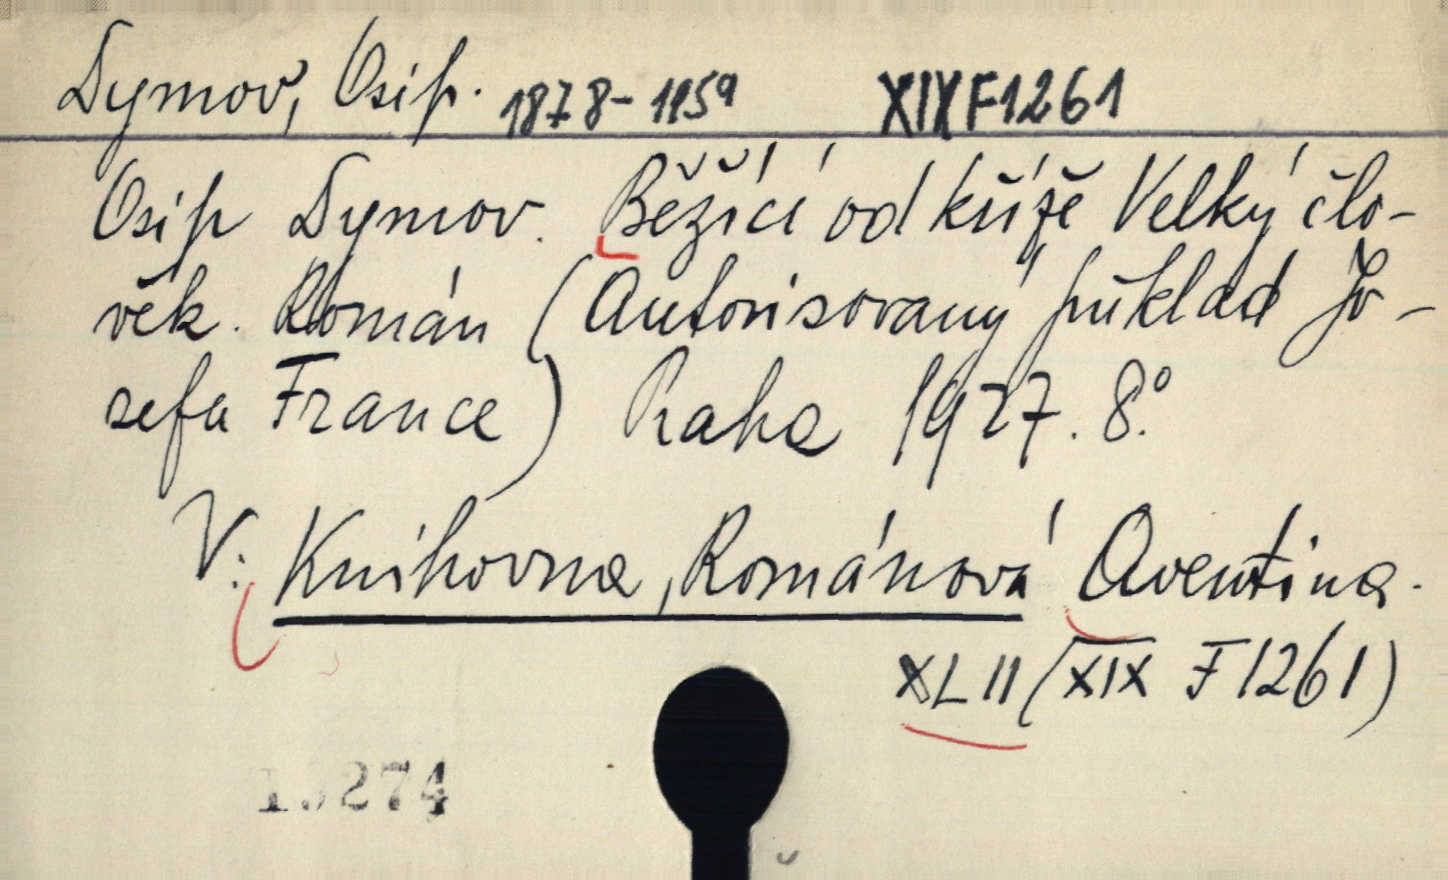 Dymov, Osip. 1878-1959 XIXF1261
Osip Dymov. Běžící od kříže Velký člo-
věk. Román (Autorisovaný překlad Jo-
sefa France) Praha 1927. 8.°
V: Knihovna, Románová Aventina.
XLII (XIX F 1261)